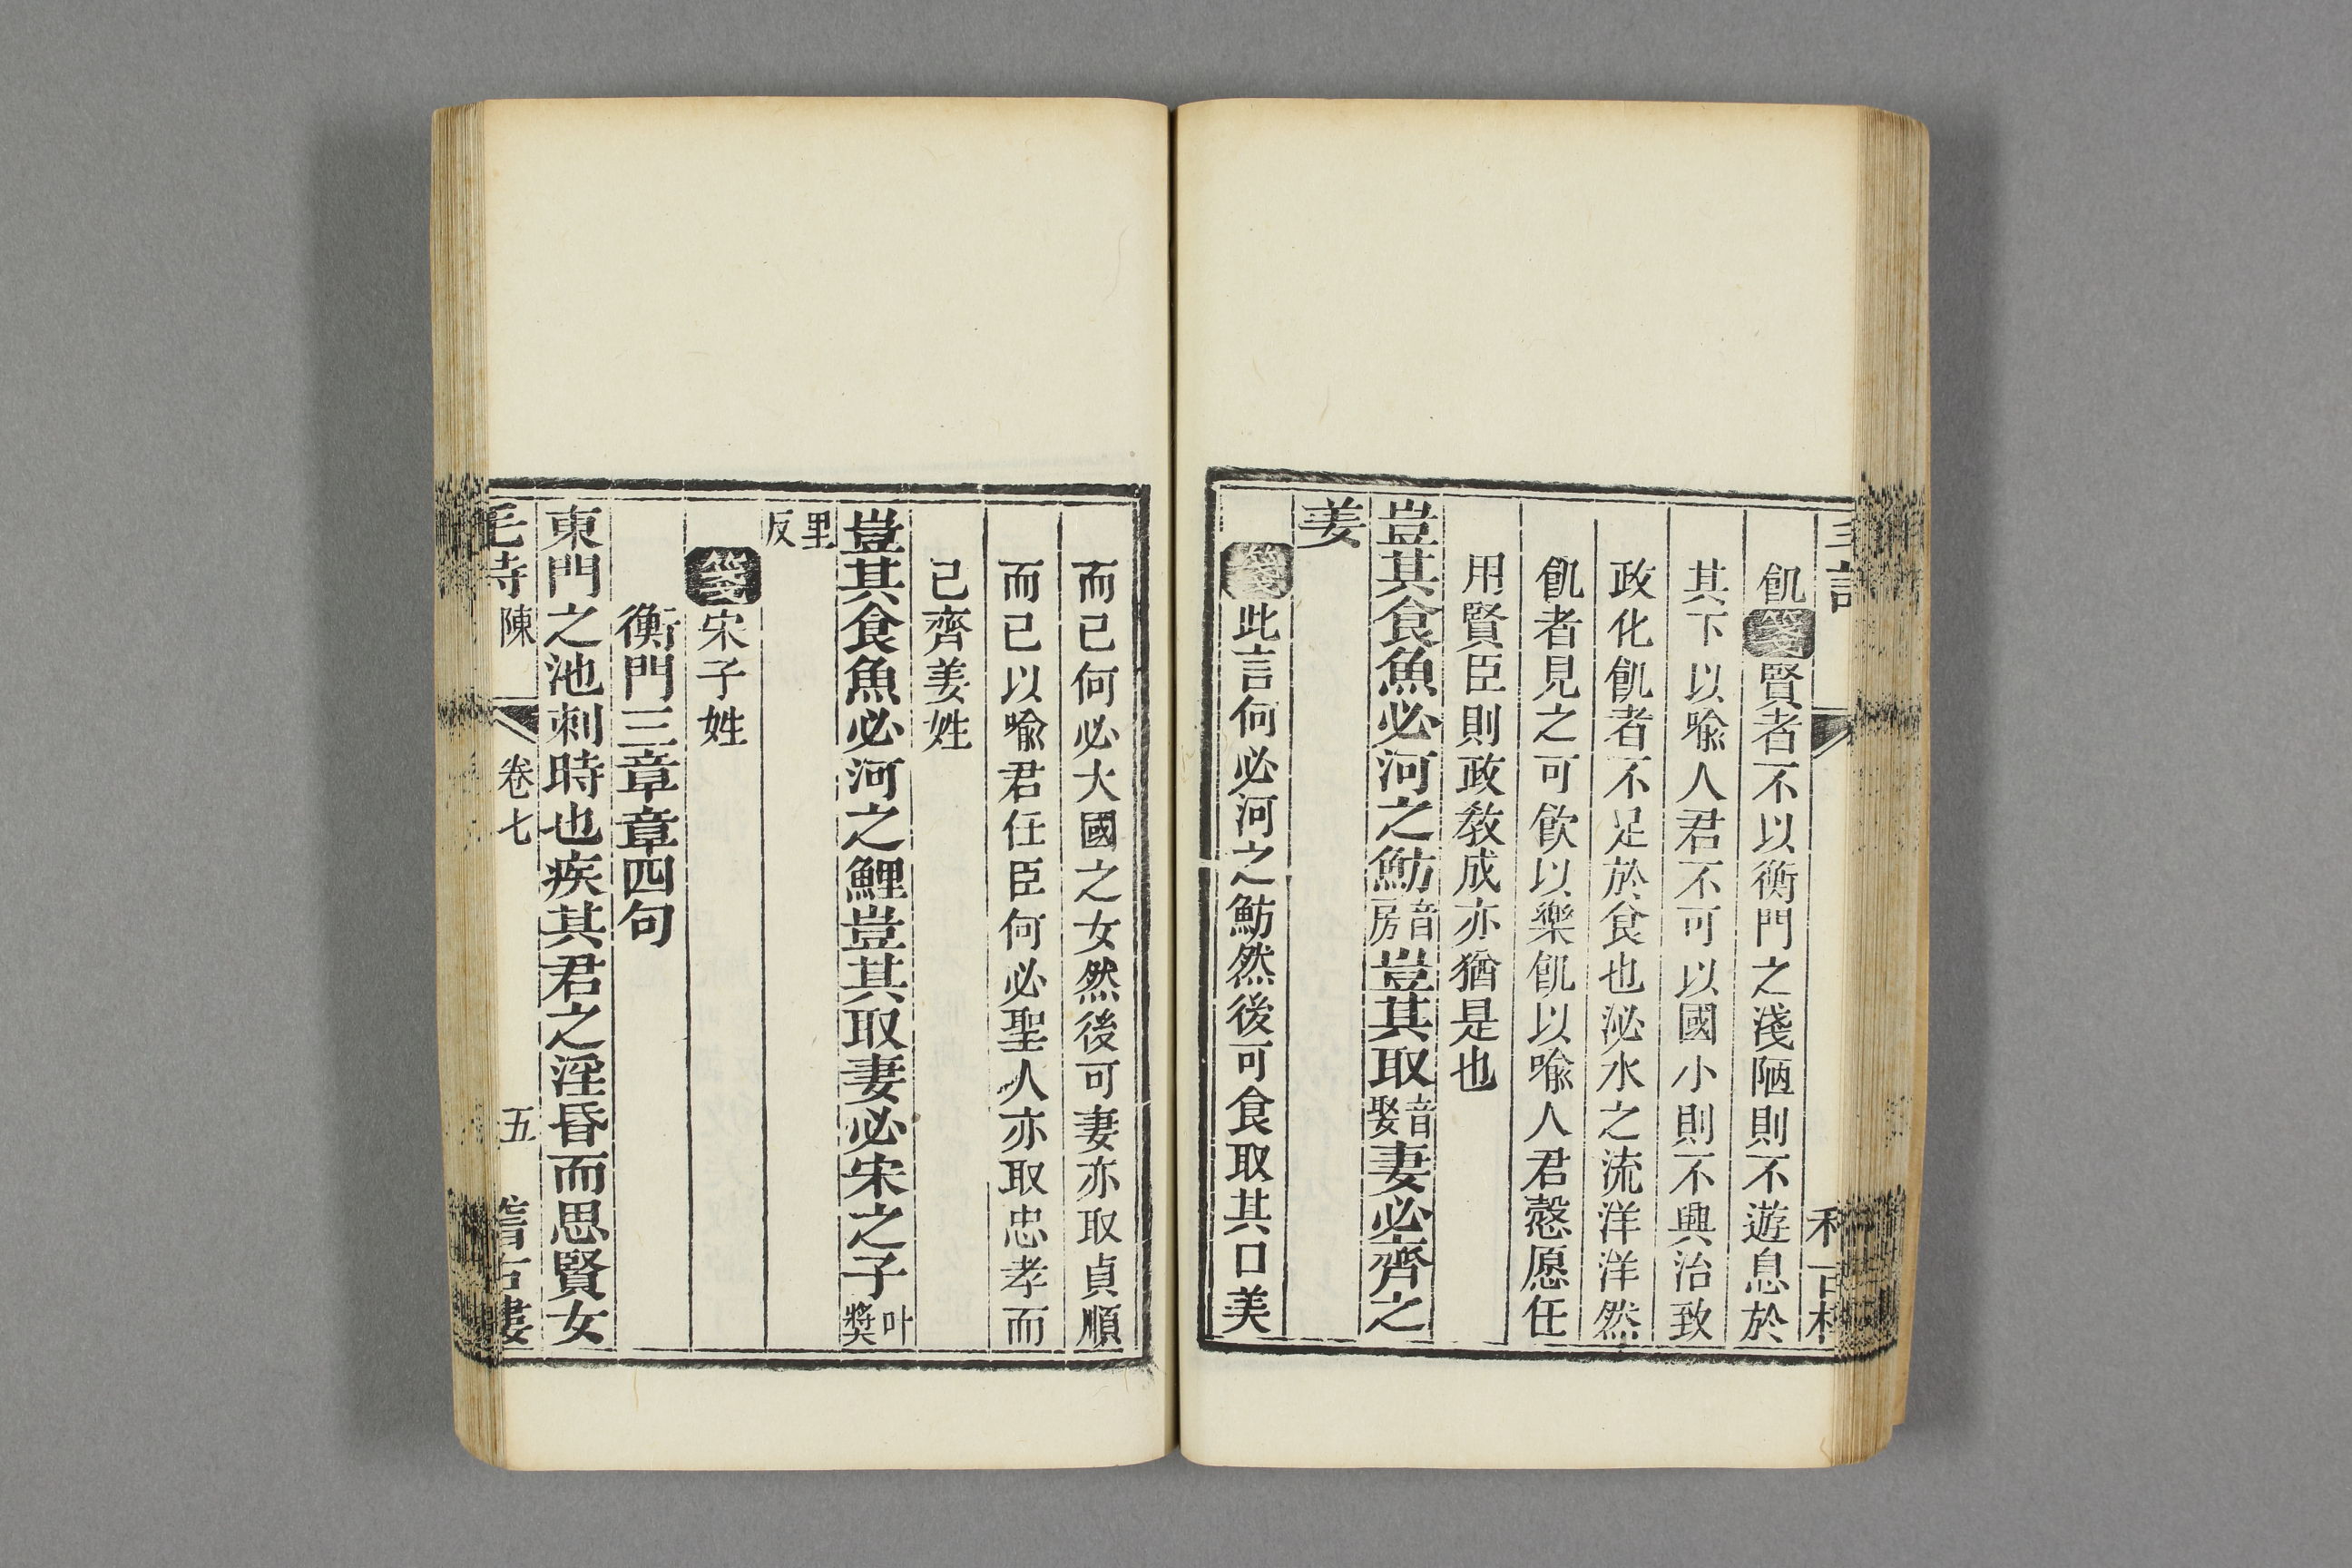 飢箋賢者不以衡門之淺陋則不遊息於
其下以喻人君不可以國小則不興治致
政化飢者不足於食也泌水之流洋洋然
飢者見之可飲以樂飢以喻人君慤愿任
用賢臣則政教成亦猶是也
豈其食魚必河之魴音房豈其取音娶妻必齊之
姜
箋此言何必河之魴然後可食取其口美
而已何必大國之女然後可妻亦取貞順
而已以喻君任臣何必聖人亦取忠孝而
已齊姜姓
豈其食魚必河之鯉豈其取妻必宋之子叶獎
里反
箋宋子姓
衡門三章章四句
東門之池刺時也疾其君之淫昏而思賢女
毛詩 陳 卷七 五 稽古樓